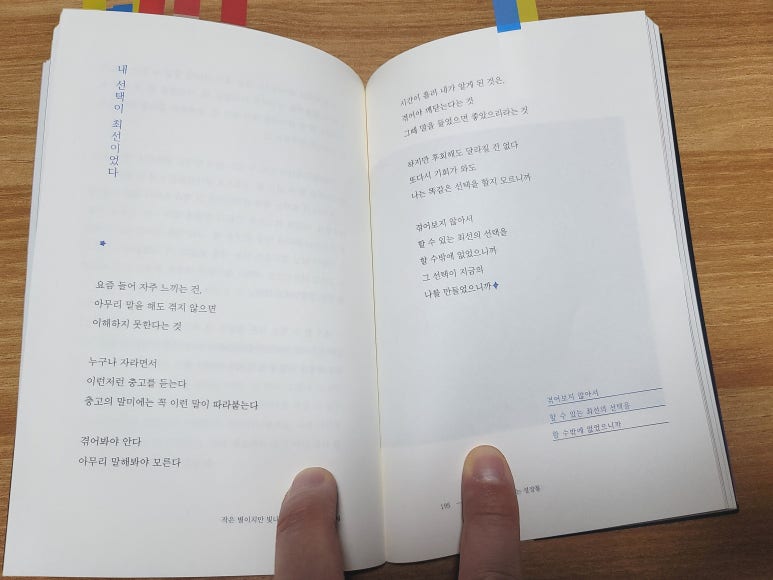 내 선택이 최선이었다
요즘 들어 자주 느끼는 건,
아무리 말을 해도 겪지 않으면
이해하지 못한다는 것
누구나 자라면서
이런저런 충고를 듣는다
충고의 말미에는 꼭 이런 말이 따라붙는다
겪어봐야 안다
아무리 말해봐야 모른다
작은 별이지만 빛나
시간이 흘러 내가 알게 된 것은,
겪어야 깨닫는다는 것
그때 말을 들었으면 좋았으리라는 것
하지만 후회해도 달라질 건 없다
또다시 기회가 와도
나는 똑같은 선택을 할지 모르니까
겪어보지 않아서
할 수 있는 최선의 선택을
할 수밖에 없었으니까
그 선택이 지금의
나를 만들었으니까
겪어보지 않아서
할 수 있는 최선의 선택을
할 수밖에 없었으니까
195
는 성장통